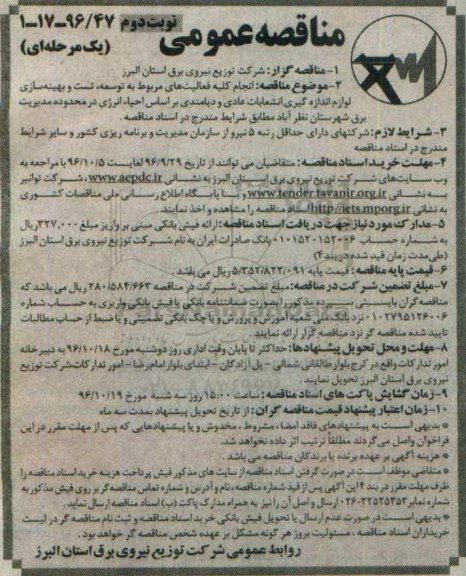 مناقصه عمومی
نوبت دوم ۹۶/۴۷-۱۷-۱
(یک مرحله ای)
۱-مناقصه گزار: شرکت توزیع نیروی برق استان البرز
۲-موضوع مناقصه: انجام کلیه فعالیت‌های مربوط به توسعه، تست و بهینه‌سازی
لوازم اندازه گیری انشعابات عادی و دیماندی بر اساس احیاء انرژی در محدوده مدیریت
برق شهرستان نظر آباد مطابق شرایط مندرج در اسناد مناقصه.
۳- شرایط لازم: شرکتهای دارای حداقل رتبه ۵ نیرو از سازمان مدیریت و برنامه ریزی کشور و سایر شرایط
مندرج در اسناد مناقصه
۴-مهلت خرید اسناد مناقصه: متقاضیان می توانند از تاریخ ۹۶/۹/۲۹ لغایت ۹۶/۱۰/۵ با مراجعه به
وب سایت‌های شرکت توزیع نیروی برق استان البرز به نشانی www.aepdc.ir، شرکت توانیر
به نشانی www.tender.tavanir.org.ir و یا پایگاه اطلاع رسانی ملی مناقصات کشوری
به نشانی http://iets.mporg.ir اسناد مناقصه را مشاهده و اخذ نمایند.
۵-مدارک مورد نیاز جهت دریافت اسناد مناقصه: ارائه فیش بانکی مبنی بر واریز مبلغ ۳۲۷,۰۰۰ ریال
به شماره حساب ۰۱۰۱۵۲۰۱۵۲۰۰۶ بانک صادرات ایران به نام شرکت توزیع نیروی برق استان البرز
(طی مدت زمان قید شده در بند ۴)
۶-قیمت پایه مناقصه: قیمت پایه ۵/۳۵۲/۸۲۲/۰۹۱ ریال می باشد.
۷-مبلغ تضمین شرکت در مناقصه: مبلغ تضمین شرکت در مناقصه ۲۸۰/۵۸۴/۶۶۳ ریال می باشد که
مناقصه گران بایستی سپرده مذکور را بصورت ضمانتنامه بانکی یا فیش بانکی واریزی به حساب شماره
۰۱۰۲۷۹۵۱۲۶۰۰۶ نزد بانک ملی شعبه آموزش و پرورش و یا چک بانکی تضمینی و یا ضبط از حساب مطالبات
تایید شده مناقصه گر نزد مناقصه گزار ارائه نمایند.
۸-مهلت و محل تحویل پیشنهادها: حداکثر تا پایان وقت اداری روز دوشنبه مورخ ۹۶/۱۰/۱۸ به دبیرخانه
امور تدارکات واقع در کرج بلوار طالقانی شمالی - پل آزادگان - ابتدای بلوار امام رضا - امور تدارکات شرکت توزیع
نیروی برق استان البرز تحویل نمایند.
۹-زمان گشایش پاکت های اسناد مناقصه: ساعت ۱۵:۰۰ روز سه شنبه مورخ ۹۶/۱۰/۱۹
۱۰-زمان اعتبار پیشنهاد قیمت مناقصه گران: از تاریخ تحویل پیشنهاد بمدت سه ماه
* بدیهی است به پیشنهادهای فاقد امضاء، مشروط، مخدوش و یا پیشنهادهایی که پس از مهلت مقرر در این
فراخوان واصل می گردند مطلقاً ترتیب اثر داده نخواهد شد.
* هزینه آگهی بر عهده برنده یا برندگان مناقصه می باشد.
* متقاضی موظف است در صورت گرفتن اسناد مناقصه از سایت های مذکور فیش پرداخت هزینه خرید اسناد مناقصه را
ظرف مهلت مقرر در بند ۴ این آگهی پس از قید شماره مناقصه، نام و آدرس و شماره تماس مناقصه گر بر روی فیش مذکور به
شماره نمابر ۳۲۵۲۵۳۵۳-۰۲۶ ارسال و اصل آن را نیز به همراه مدارک پاکت (ب) اسناد مناقصه ارسال نماید.
* بدیهی است در صورت عدم ارسال یا تحویل فیش بانکی خرید اسناد مناقصه و ثبت نام مناقصه گر در لیست
خریداران اسناد مناقصه، مسئولیت بروز هر گونه مشکل بر عهده شخص مناقصه گر خواهد بود.
روابط عمومی شرکت توزیع نیروی برق استان البرز